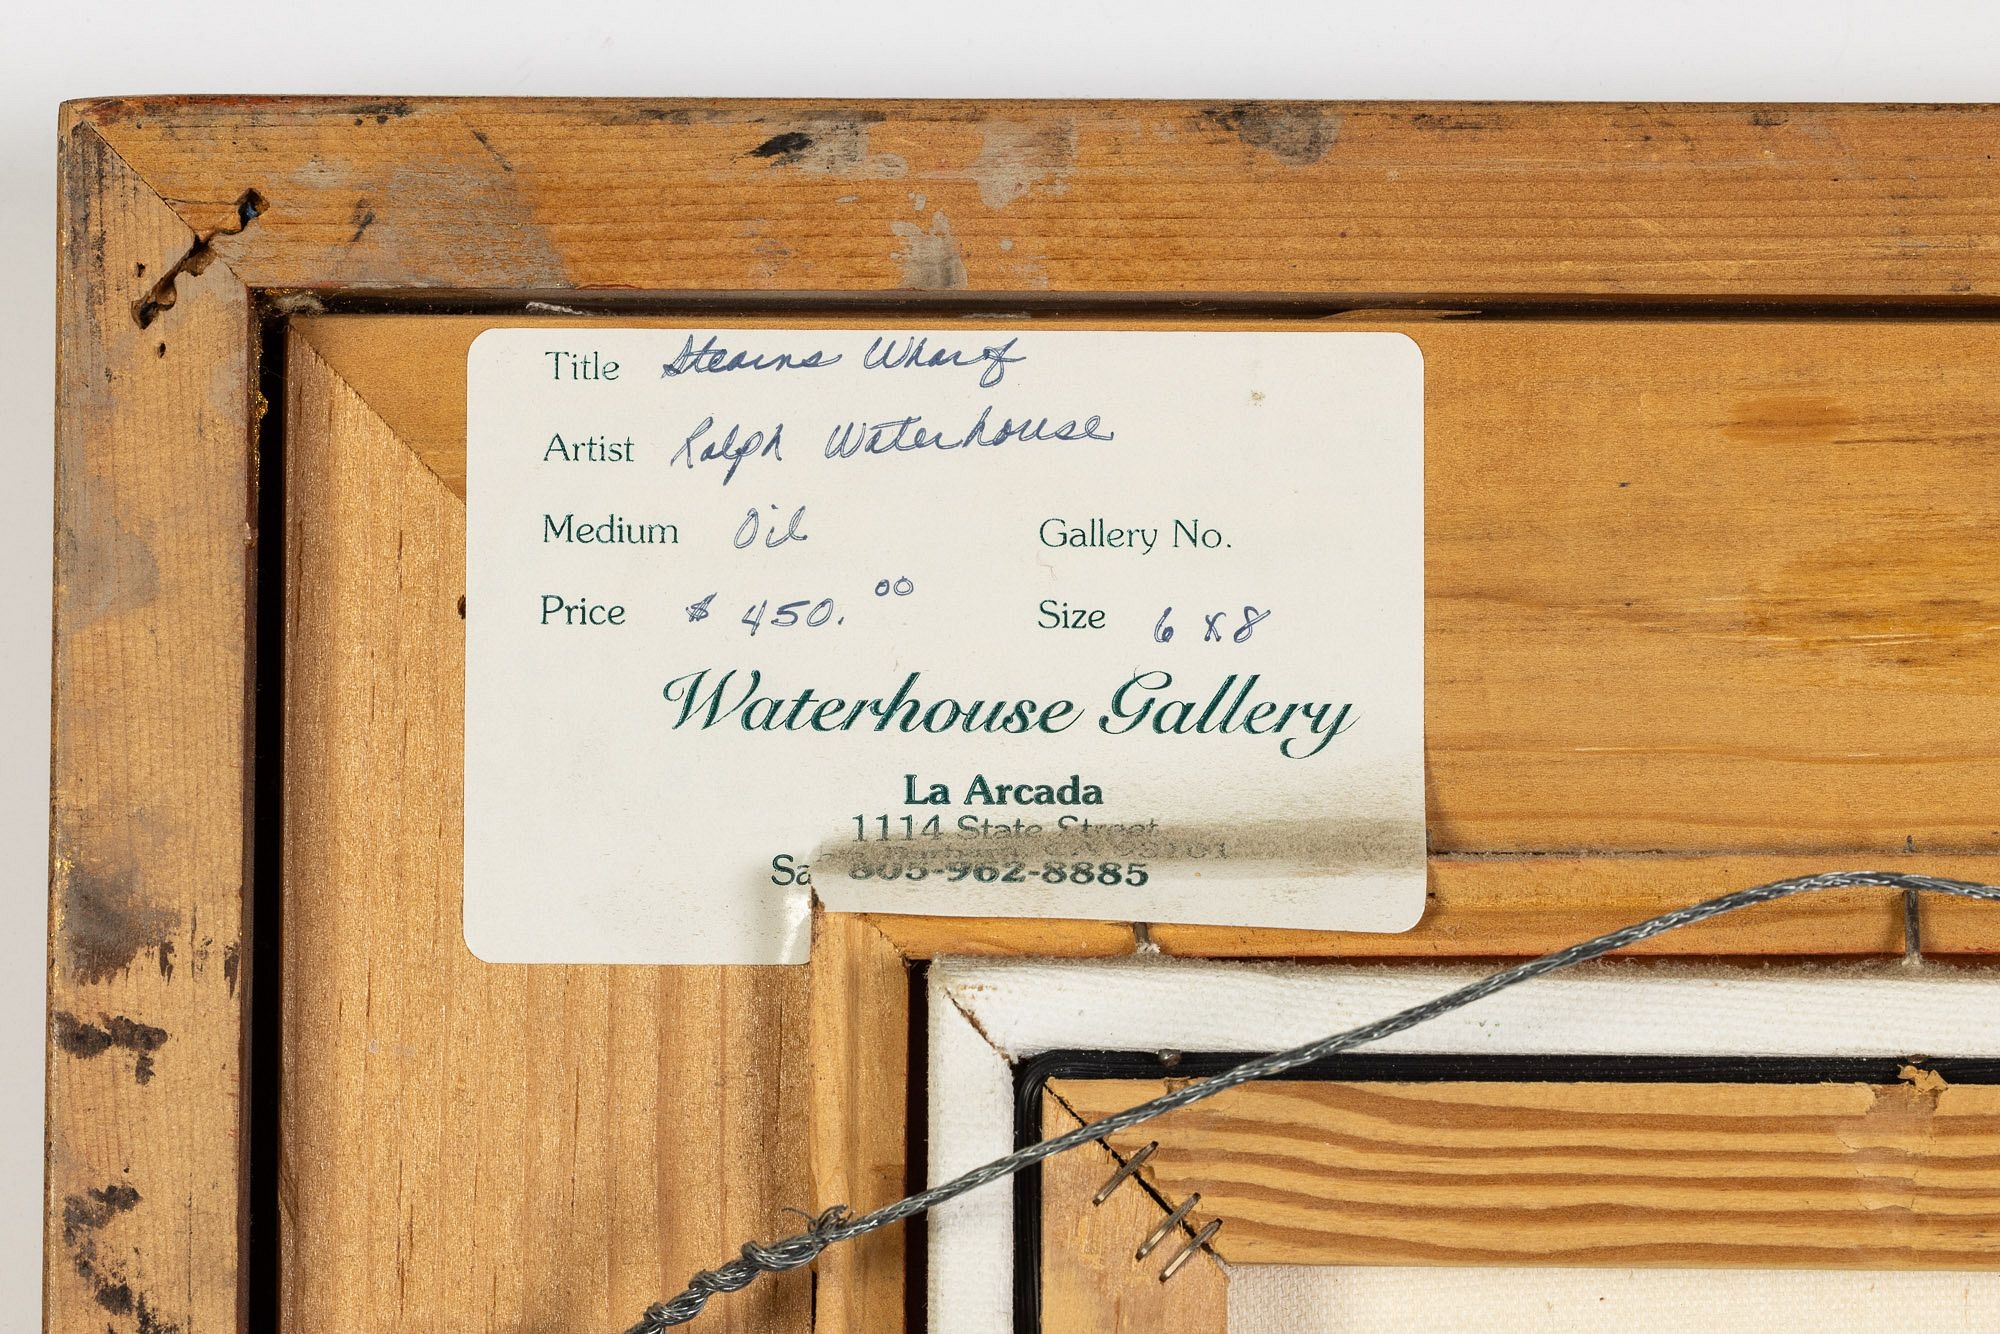 Title Stearns Wharf
Artist Ralph Waterhouse
Medium Oil Gallery No.
Price $ 450.00 Size 6 x 8
Waterhouse Gallery
La Arcada
1114 State Street
Sa
805-962-8885